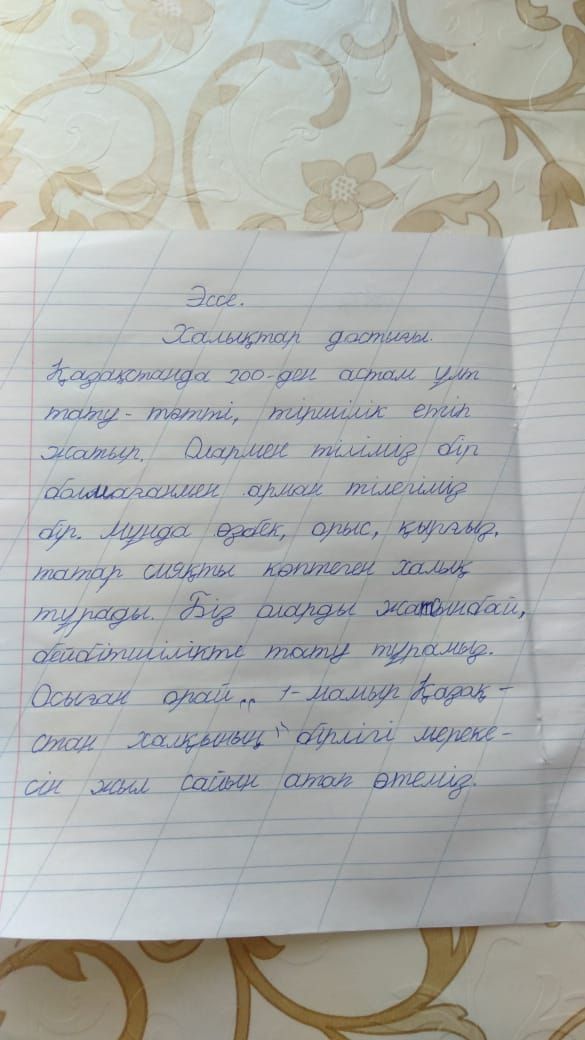 Эссе.
Халықтар достығы.
Қазақстанда 200-ден астам ұлт
тату-тәтті, тіршілік етіп
жатыр. Олармен тіліміз бір
болмағанмен арман тілегіміз
бір. Мұнда өзбек, орыс, қырғыз,
татар сияқты көптеген халық
тұрады. Біз оларды жатсынбай,
бейбітшілікте тату тұрамыз.
Осыған орай „ 1-мамыр Қазақ-
стан халқының" бірлігі мереке-
сін жыл сайын атап өтеміз.